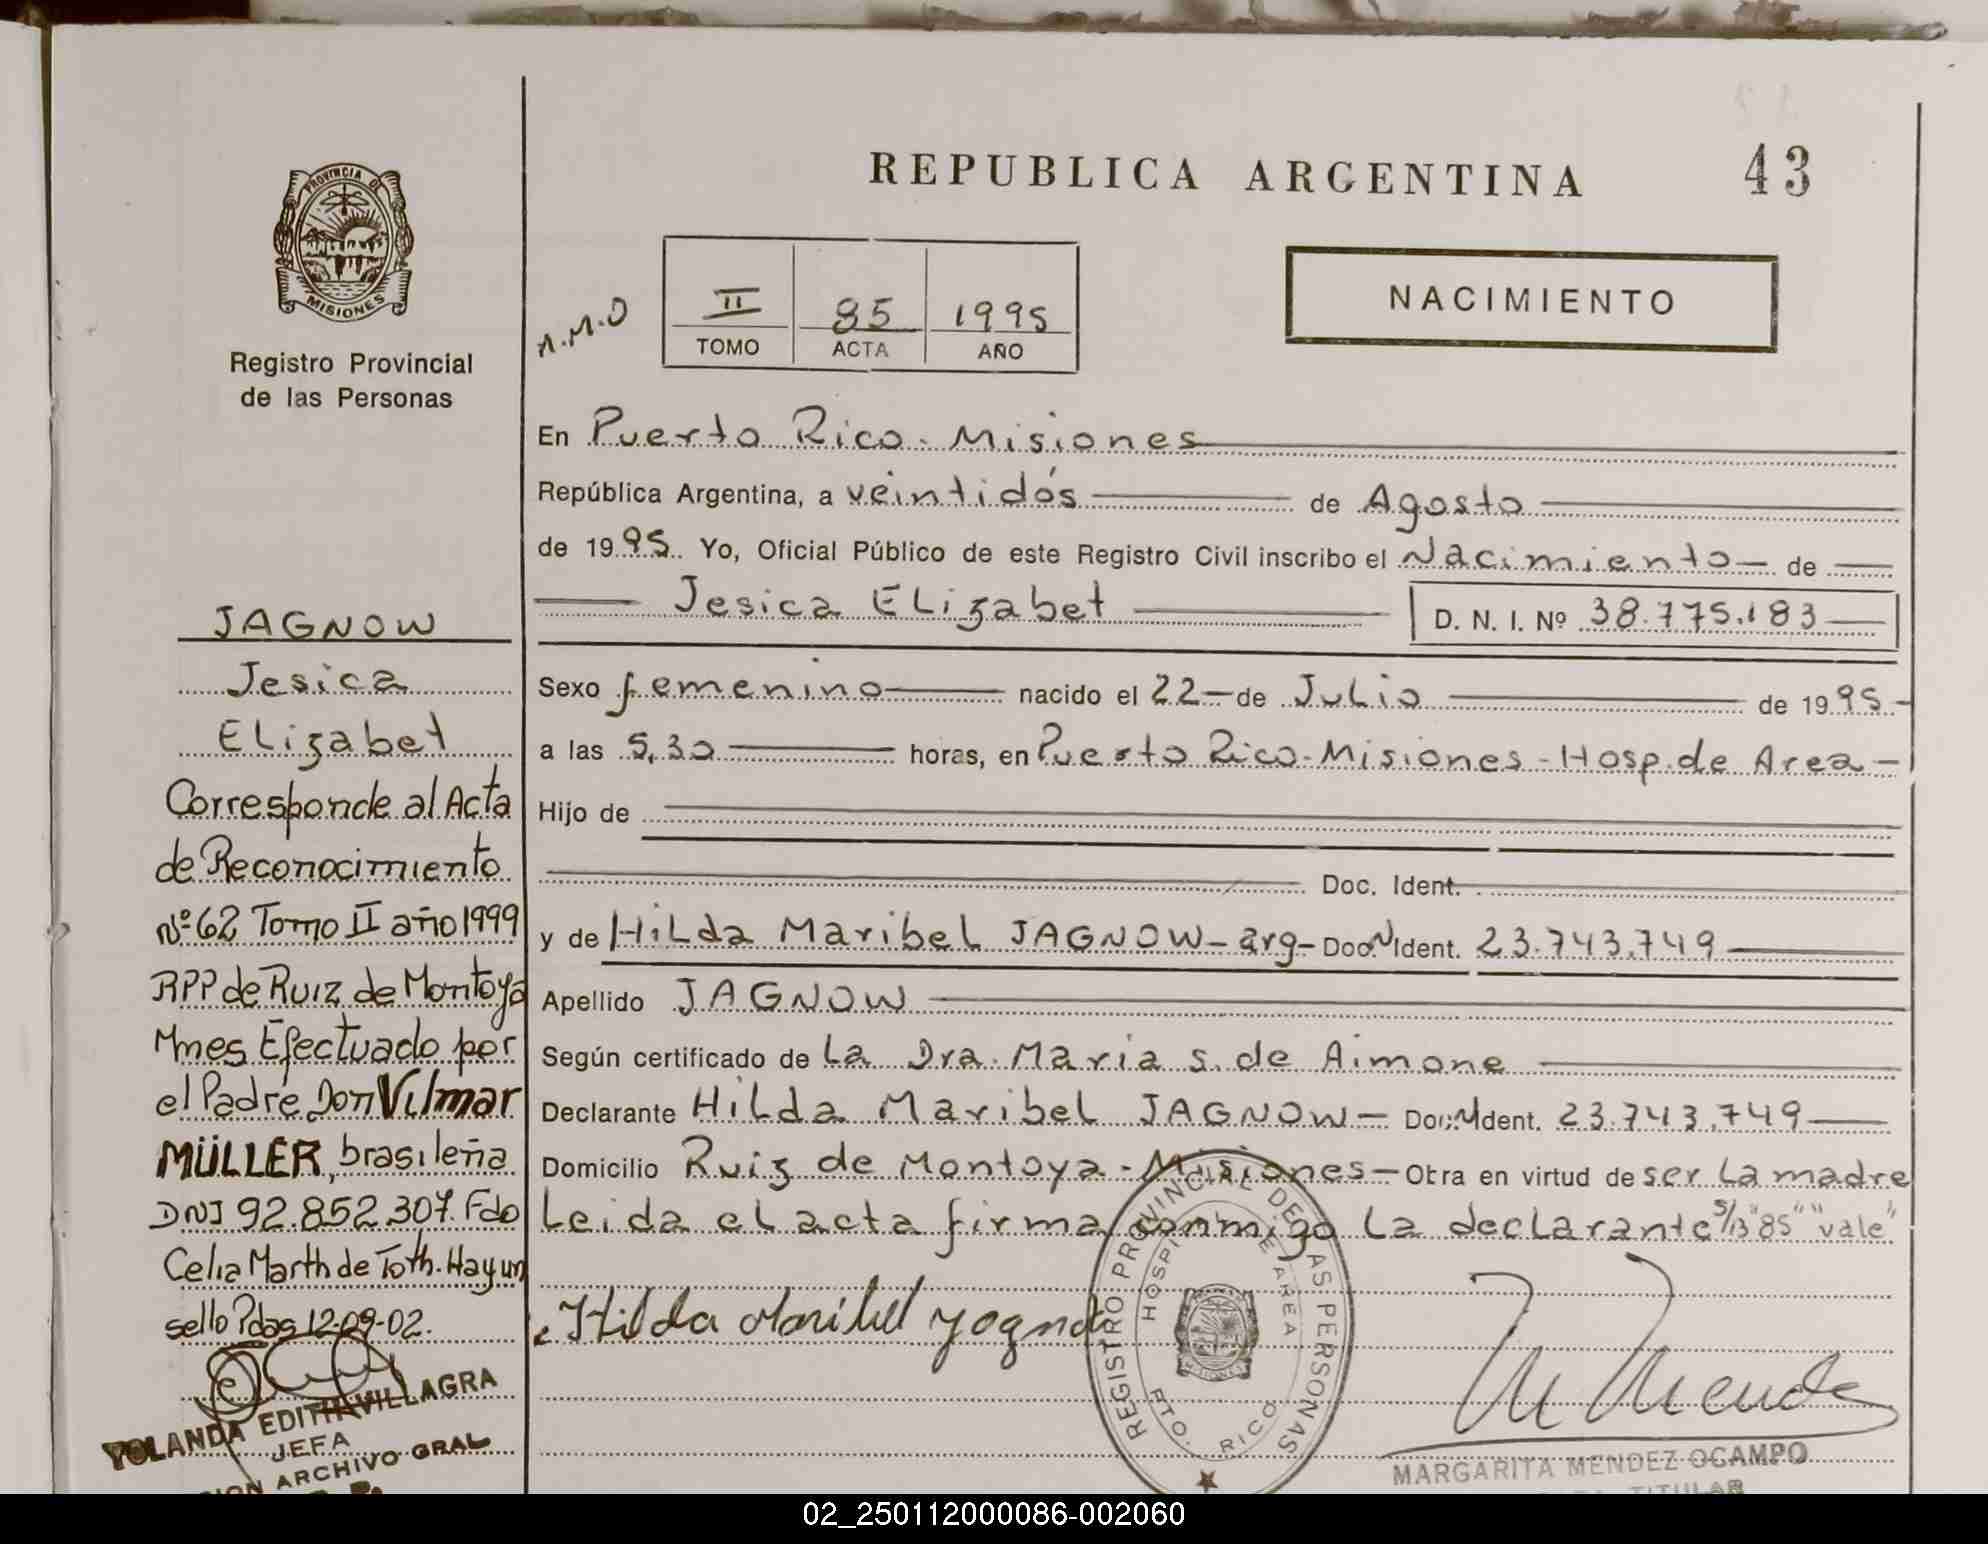 REPUBLICA ARGENTINA 43
PROVINCIA DE
MISIONES
Registro Provincial
de las Personas
A.M.O
II 85 1995
TOMO ACTA AÑO
NACIMIENTO
En Puerto Rico - Misiones
República Argentina, a veintidós de Agosto
de 1995. Yo, Oficial Público de este Registro Civil inscribo el Nacimiento de
Jesica ELizabet D. N. I. Nº 38.775.183
Sexo femenino nacido el 22 de Julio de 1995
a las 5,30 horas, en Puerto Rico - Misiones - Hosp. de Area
Hijo de
Doc. Ident.
y de HiLda Maribel JAGNOW - arg - Doc. N Ident. 23.743.749
Apellido JAGNOW
Según certificado de La Dra. Maria S. de Aimone
Declarante HiLda Maribel JAGNOW - Doc. N Ident. 23.743.749
Domicilio Ruiz de Montoya - Misiones - Obra en virtud de ser La madre
Leida el acta firma conmigo La declarante S/B "85" "vale"
Hilda Maribel Yagno
REGISTRO PROVINCIAL DE LAS PERSONAS
HOSPI DE AREA
PTO. RICO
M Mende
MARGARITA MENDEZ OCAMPO
TITULAR
JAGNOW
Jesica
ELizabet
Corresponde al Acta
de Reconocimiento
Nº 62 Tomo II año 1999
RPP de Ruiz de Montoya
Mnes Efectuado por
el Padre Don Vilmar
MÜLLER, brasileña
DNI 92.852.307. Fdo
Celia Marth de Toth. Hay un
sello Pdas 12-09-02.
YOLANDA EDITH VILLAGRA
JEFA
ION ARCHIVO GRAL
02_250112000086-002060